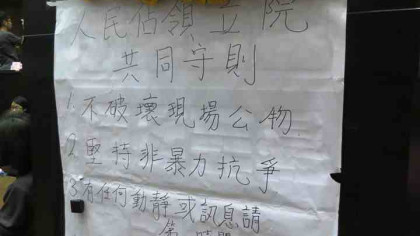 人民佔領立院
共同守則
1. 不破壞現場公物
2. 堅持非暴力抗爭
3. 有任何動靜或訊息請
第一時間